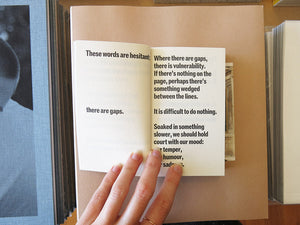 These words are hesitant;
there are gaps.
Where there are gaps,
there is vulnerability.
If there's nothing on the
page, perhaps there's
something wedged
between the lines.
It is difficult to do nothing.
Soaked in something
slower, we should hold
court with our mood:
our temper,
humour,